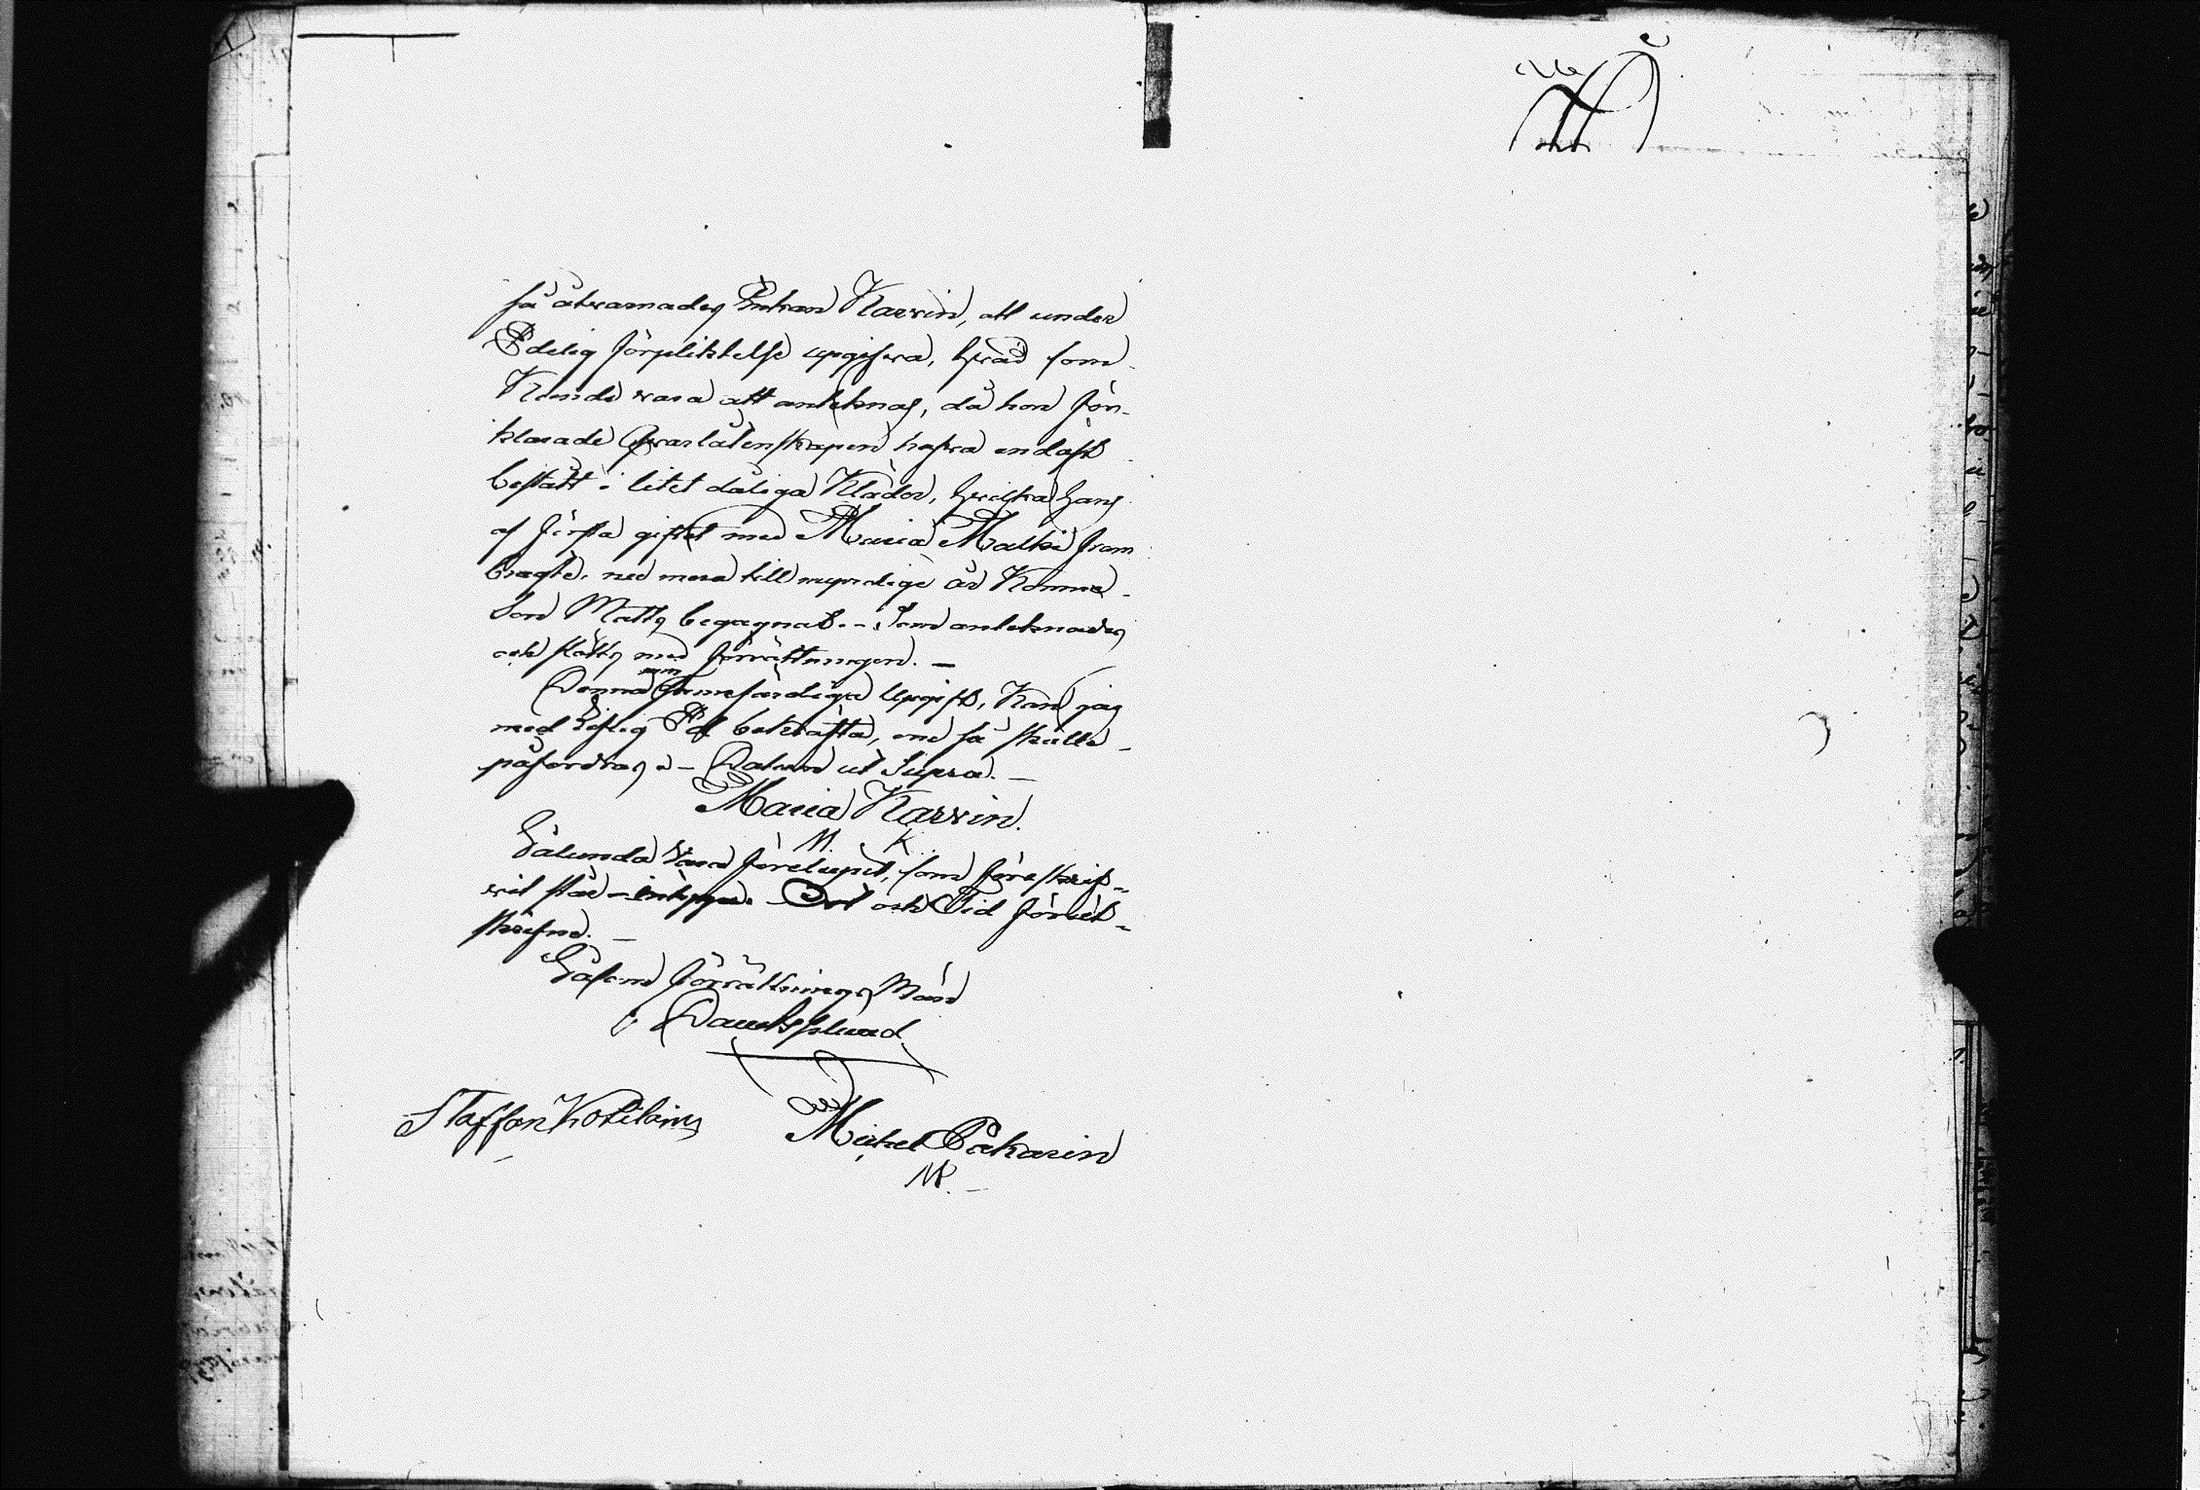 så åtwarnades Enkan Karvin, att under
Edelig förplicktelse upgifwa, hwad som
Kunde wara att anteknas, då hon för-
klarade Qwarlåtenskapen hafwa endast
bestått i litet dåliga Kläder, hwilka hans
af första giftet med Maria Malkki fram
bragte, ned mera till myndige år Komne
Son Matts begagnat. - Som anteknades
och slöts med förrättningen. -
Denna min sannfärdiga Upgift, Kan jag
med Liflig Ed bekräfta, om så skulle
påfordras. - Datum ut Supra. -
Maria Karvin.
M. K.
Sålunda vara förelupit, som föreskrif-
wit står - Ort och Tid förut-
skrefne. -
Såsom förrättnings Män
Staffan Kotilain
Michel Pakarin
MP. -